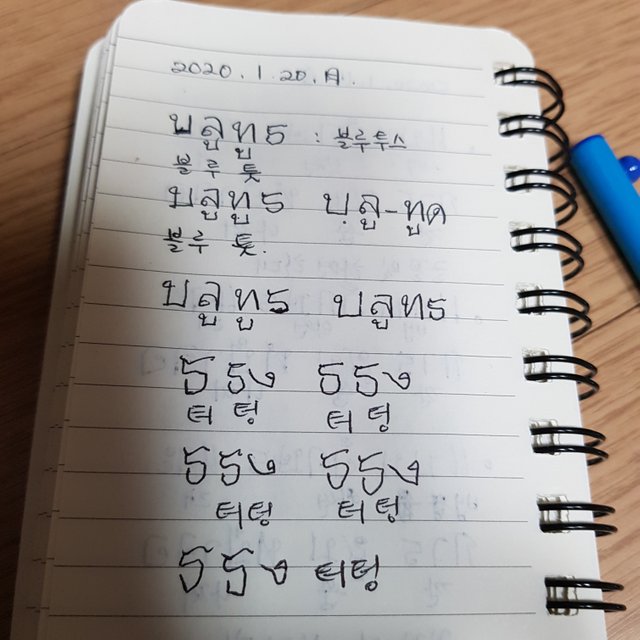 2020.1.20.月.
บลูทูธ : 블루투스
블루 툿
บลูทูธ บฺลู-ทูด
블루 툿.
บลูทูธ บลูทธ
ธ ธง ธ ธง
터 텅 터 텅
ธ ธง ธ ธง
터텅 터 텅
ธ ธง 터텅